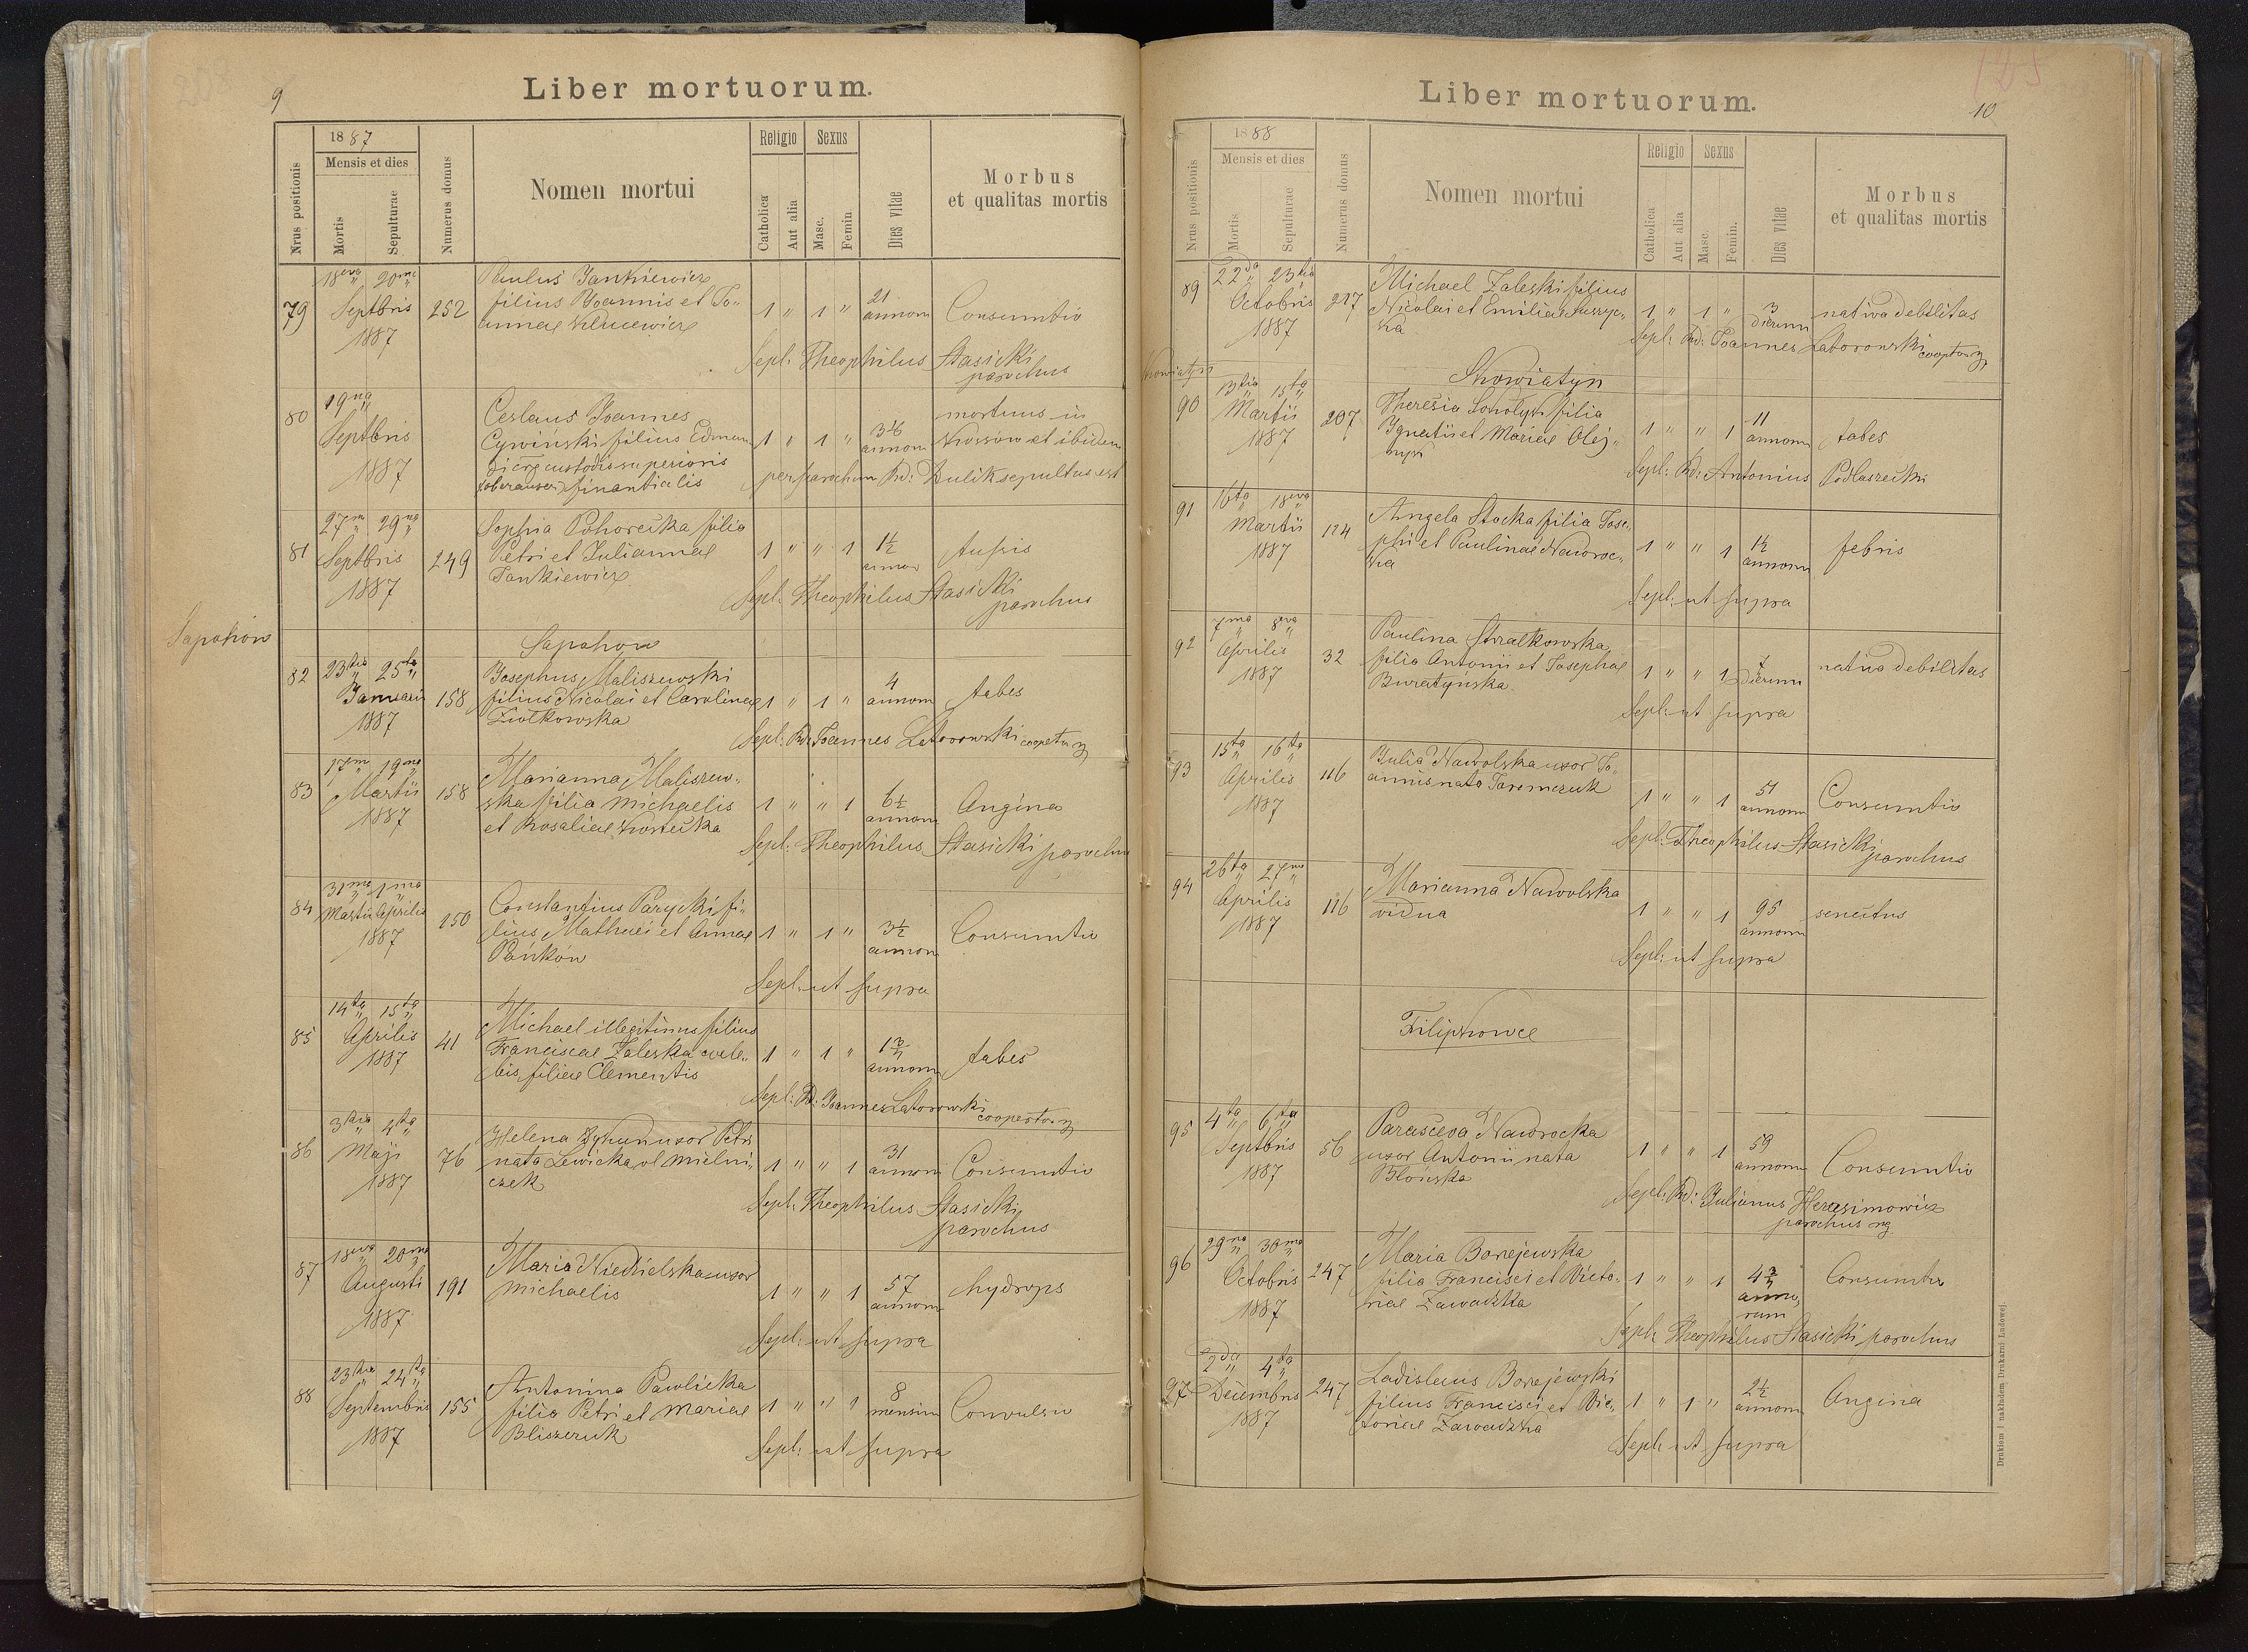 9
Liber mortuorum.
Nrus positionis
1887
Mensis et dies
Mortis
Sepulturae
Numerus domus
Nomen mortui
Religio
Catholica
Aut alia
Sexus
Masc.
Femin.
Dies vitae
Morbus
et qualitas mortis
79
18eva 20ma
Septbris
1887
252
Paulus Jankiewicz
filius Joannis et Jo-
annae
1 " 1 "
21
annorum
Consumtio
Sepl: Theophilus Stasicki
parochus
80
19na
Septbris
1887
Ceslaus Joannes
Cywiński filius Edmun
di custodis superioris
financialis
1 " 1 "
36
annorum
mortuus in
Kossów et ibidem
per parochum Rd: Dulik sepultus est
81
27ma 29na
Septbris
1887
249
Sophia Pohorecka filia
Petri et Juliannae
Jankiewicz
1 " " 1
1½
annor
tussis
Sepl: Theophilus Stasicki
parochus
Sapohów
Sapohow
82
23tia 25ta
Januarii
1887
158
Josephus Maliszewski
filius Nicolai et Carolinae
Ziółkowska
1 " 1 "
4
annorum
tabes
Sepl: Rd: Joannes Latorowski cooptor
83
17ma 19na
Martii
1887
158
Marianna Maliszew-
ska filia Michaelis
et Rosaliae Kostecka
1 " " 1
6½
annorum
Angina
Sepl: Theophilus Stasicki
parochus
84
31ma 1ma
Martii Aprilis
1887
150
Constantius Parycki fi-
lius Mathaei et Annae
Pańków
1 " 1 "
3½
annorum
Consumtio
Sepl: ut supra
85
14ta 15ta
Aprilis
1887
41
Michael illegitimus filius
Franciscae Zaleska coele-
bis filiae Clementis
1 " 1 "
annorum
tabes
Sepl: Rd: Joannes Latorowski
cooperator
86
3tia 4ta
Maji
1887
76
Helena uxor Petri
nata Lewicka vl Mielni-
czek
1 " " 1
31
annorum
Consumtio
Sepl: Theophilus Stasicki
parochus
87
18eva 20ma
Augusti
1887
191
Maria Niedzielska uxor
Michaelis
1 " " 1
57
annorum
hydrops
Sepl: ut supra
88
23tia 24ta
Septembris
1887
155
Antonina Pawlicka
filia Petri et Mariae
Bliszczuk
1 " " 1
8
mensium
Convulsio
Sepl: ut supra
125
10
Liber mortuorum.
Nrus positionis
1888
Mensis et dies
Mortis
Sepulturae
Numerus domus
Nomen mortui
Religio
Catholica
Aut alia
Sexus
Masc.
Femin.
Dies vitae
Morbus
et qualitas mortis
89
22da 23tia
Octobris
1887
217
Michael Zaleski filius
Nicolai et Emiliae
ka
1 " 1 "
3
dierum
nativa debilitas
Sepl: Rd: Joannes Latorowski cooptor
Kowiatyn
90
13tia 15ta
Martii
1887
207
Theresia filia
Ignatii et Mariae Olej-
1 " " 1
11
annorum
tabes
Sepl: Rd: Antonius Podlaszecki
91
16ta 18eva
Martii
1887
124
Angela Stocka filia Jose-
phi et Paulinae Nawroc-
ka
1 " " 1
1½
annorum
febris
Sepl: ut supra
92
7ma 8eva
Aprilis
1887
32
Paulina Strzałkowska
filia Antonii et Josephae
Buratyńska
1 " " 1
7
dierum
nativa debilitas
Sepl: ut supra
93
15ta 16ta
Aprilis
1887
116
Julia Nawolska uxor Jo-
annis nata Jaremczuk
1 " " 1
51
annorum
Consumtio
Sepl: Theophilus Stasicki
parochus
94
26ta 27ma
Aprilis
1887
116
Marianna Nawolska
vidua
1 " " 1
95
annorum
senectus
Sepl: ut supra
Filipkowce
95
4ta 6ta
Septbris
1887
56
Parasceva Nawrocka
uxor Antonii nata
Błońska
1 " " 1
59
annorum
Consumtio
Sepl: Rd: Julianus Herasimowicz
parochus
96
29na 30ma
Octobris
1887
247
Maria Borejewska
filia Francisci et Victo-
riae Zawadzka
1 " " 1
anno-
rum
Consumtio
Sepl: Theophilus Stasicki parochus
97
2da 4ta
Decembris
1887
247
Ladislaus Borejewski
filius Francisci et Vic-
toriae Zawadzka
1 " 1 "
2½
annorum
Angina
Sepl: ut supra
Drukiem i nakładem Drukarni Ludowej.